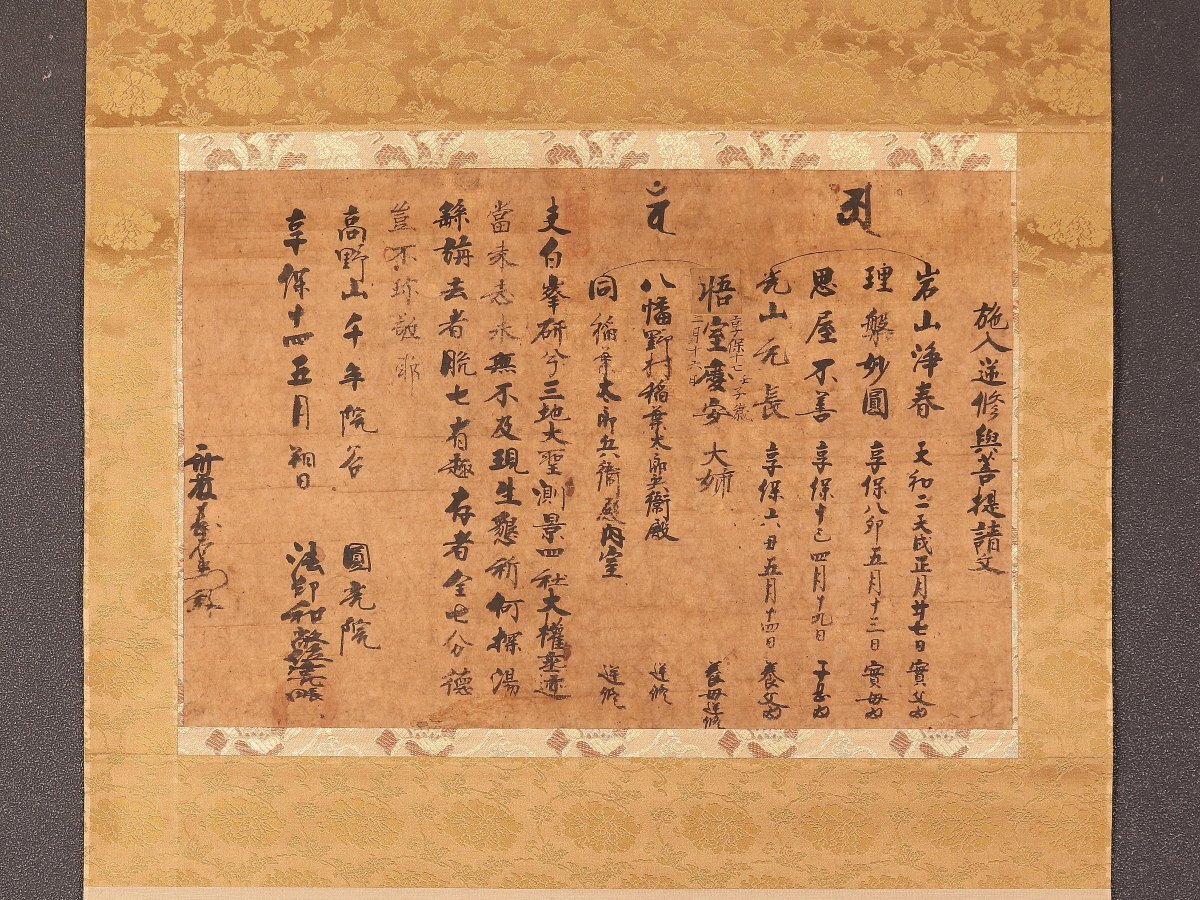 施入逆修與菩提請文
岩山淨春 天和二壬戌正月廿七日 實父也
理般妙圓 享保八卯五月十三日 實母也
思屋不善 享保十巳四月十九日 子息也
光山元長 享保六丑五月十四日 養父也
悟室慶安大姉 養母逆修
享保十七壬子歳
二月十六日
八幡野村稲葉太郎兵衛殿 逆修
同稲葉太郎兵衛殿内室 逆修
夫白峯研兮三地大聖測景四社大權垂迹
當來志求無不及現生懇祈何探湯
去者脱七有趣存者全七分德
豈不珍敬耶
高野山千年院谷 圓光院
享保十四五月朔日 法印和